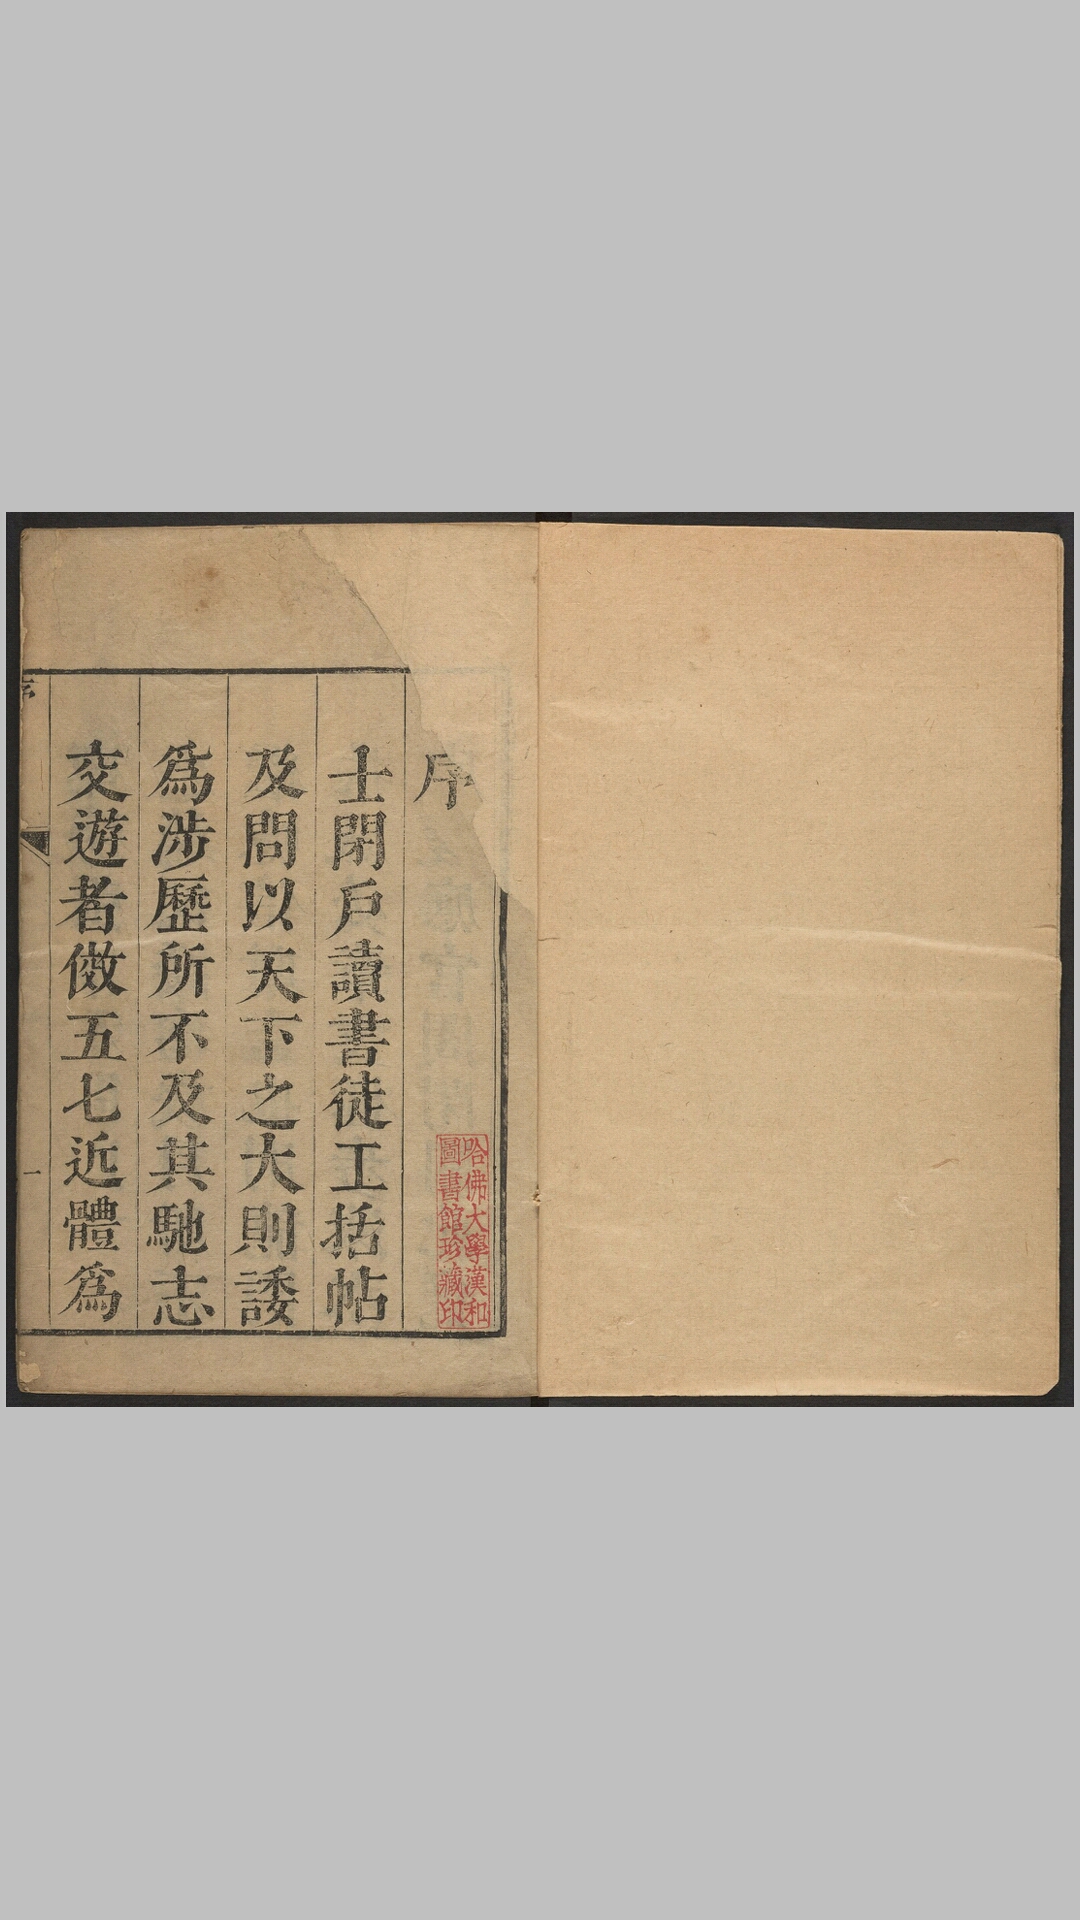 序
士閉戶讀書徒工括帖
及問以天下之大則諉
爲涉歷所不及其馳志
交遊者倣五七近體爲
序
一
哈佛大學漢和
圖書館珍藏印